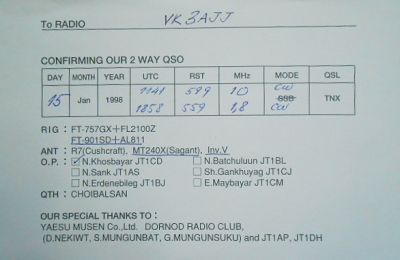 To RADIO VK3AJJ
CONFIRMING OUR 2 WAY QSO
DAY MONTH YEAR UTC RST MHz MODE QSL
15 Jan 1998 1141 599 10 CW TNX
SSB
1858 559 1,8 CW
RIG : FT-757GX+FL2100Z
FT-901SD+AL811
ANT : R7(Cushcraft), MT240X(Sagant), Inv.V
O.P. : ☑N.Khosbayar JT1CD ☐N.Batchuluun JT1BL
☐N.Sank JT1AS ☐Sh.Gankhuyag JT1CJ
☐N.Erdenebileg JT1BJ ☐E.Maybayar JT1CM
QTH : CHOIBALSAN
OUR SPECIAL THANKS TO :
YAESU MUSEN Co.,Ltd. DORNOD RADIO CLUB,
(D.NEKIWT, S.MUNGUNBAT, G.MUNGUNSUKU) and JT1AP, JT1DH